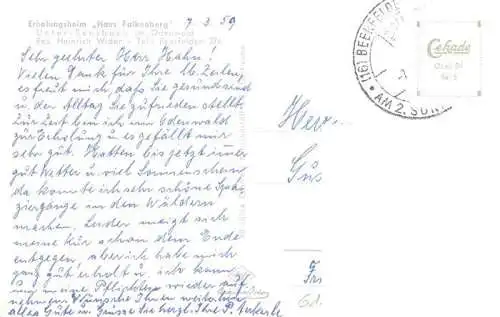 Erholungsheim „Haus Falkenberg"
Unter-Sensbach im Odenwald
Bes. Heinrich Weber - Tel. Beerfelden 276
7. 3. 59
Sehr geehrter Herr Hahn!
Vielen Dank für Ihre lb. Zeilen,
es freut mich, daß Sie gesund sind
u. der Alltag Sie zufrieden stellt
Zur Zeit bin ich im Odenwald
zur Erholung u. es gefällt mir
sehr gut. Hatten bis jetzt immer
gut Wetter u. viel Sonnenschein,
da konnte ich sehr schöne Spa-
ziergänge in den Wäldern
machen. Leider neigt sich
meine Kur schon dem Ende
entgegen, aber ich habe mich
ganz gut erholt u. ich kann
nun meine Pflichten wieder auf-
nehmen. Wünsche Ihnen weiterhin
alles Gute u. Grüsse Sie herzl. Ihre
(16) BEERFELDE
AM 2. SON
Cekade
Herr
Gus